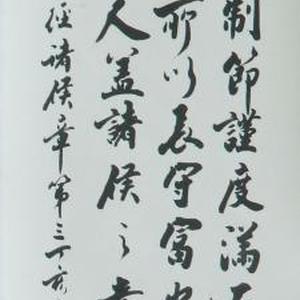 制節謹度滿而
所以長守富也
人蓋諸侯之孝
經諸侯章第三丁亥